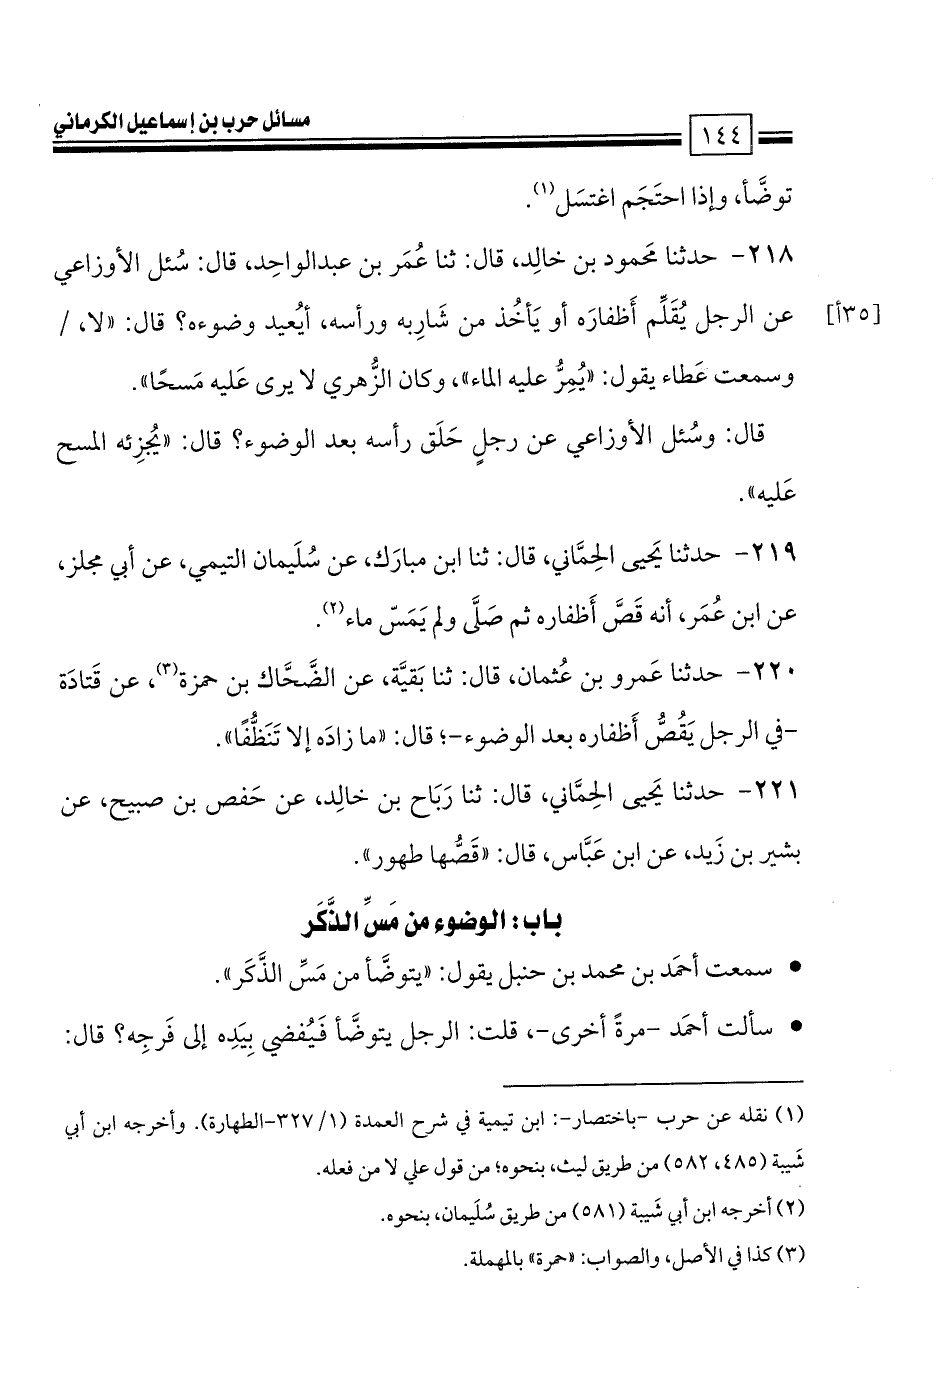 مسائل حرب بن إسماعيل الكرماني
١٤٤
توضَّأ، وإذا احتَجَم اغتسَل(١).
٢١٨- حدثنا محمود بن خالِد، قال: ثنا عُمَر بن عبدالواحِد، قال: سُئل الأوزاعي
عن الرجل يُقَلِّم أَظفارَه أو يَأخُذ من شَارِبه ورأسه، أيُعيد وضوءه؟ قال: «لا، / [٣٥أ]
وسمعت عَطاء يقول: «يُمِرُّ عليه الماء»، وكان الزُّهري لا يرى عَليه مَسحًا».
قال: وسُئل الأوزاعي عن رجلٍ حَلَق رأسه بعد الوضوء؟ قال: «يُجزِئه المسح
عَليه».
٢١٩- حدثنا يَحيى الحِمَّاني، قال: ثنا ابن مبارَك، عن سُلَيمان التيمي، عن أبي مجلز،
عن ابن عُمَر، أنه قَصَّ أَظفاره ثم صَلَّى ولم يَمَسّ ماء(٢).
٢٢٠- حدثنا عَمرو بن عُثمان، قال: ثنا بَقيَّة، عن الضَّحَّاك بن حمزة(٣)، عن قَتادَة
-في الرجل يَقُصُّ أَظفاره بعد الوضوء-؛ قال: «ما زادَه إلا تَنَظُّفًا».
٢٢١- حدثنا يَحيى الحِمَّاني، قال: ثنا رَبَاح بن خالِد، عن حَفص بن صبيح، عن
بشير بن زَيد، عن ابن عَبَّاس، قال: «قَصُّها طهور».
باب: الوضوء من مَسِّ الذَّكَر
• سمعت أحمَد بن محمد بن حنبل يقول: «يتوضَّأ من مَسِّ الذَّكَر».
• سألت أحمَد -مرةً أخرى-، قلت: الرجل يتوضَّأ فَيُفضي بيَدِه إلى فَرجِه؟ قال:
(١) نقله عن حرب -باختصار-: ابن تيمية في شرح العمدة (١/ ٣٢٧-الطهارة). وأخرجه ابن أبي
شَيبة (٤٨٥، ٥٨٢) من طريق ليث، بنحوه؛ من قول علي لا من فعله.
(٢) أخرجه ابن أبي شَيبة (٥٨١) من طريق سُلَيمان، بنحوه.
(٣) كذا في الأصل، والصواب: «حمرة» بالمهملة.